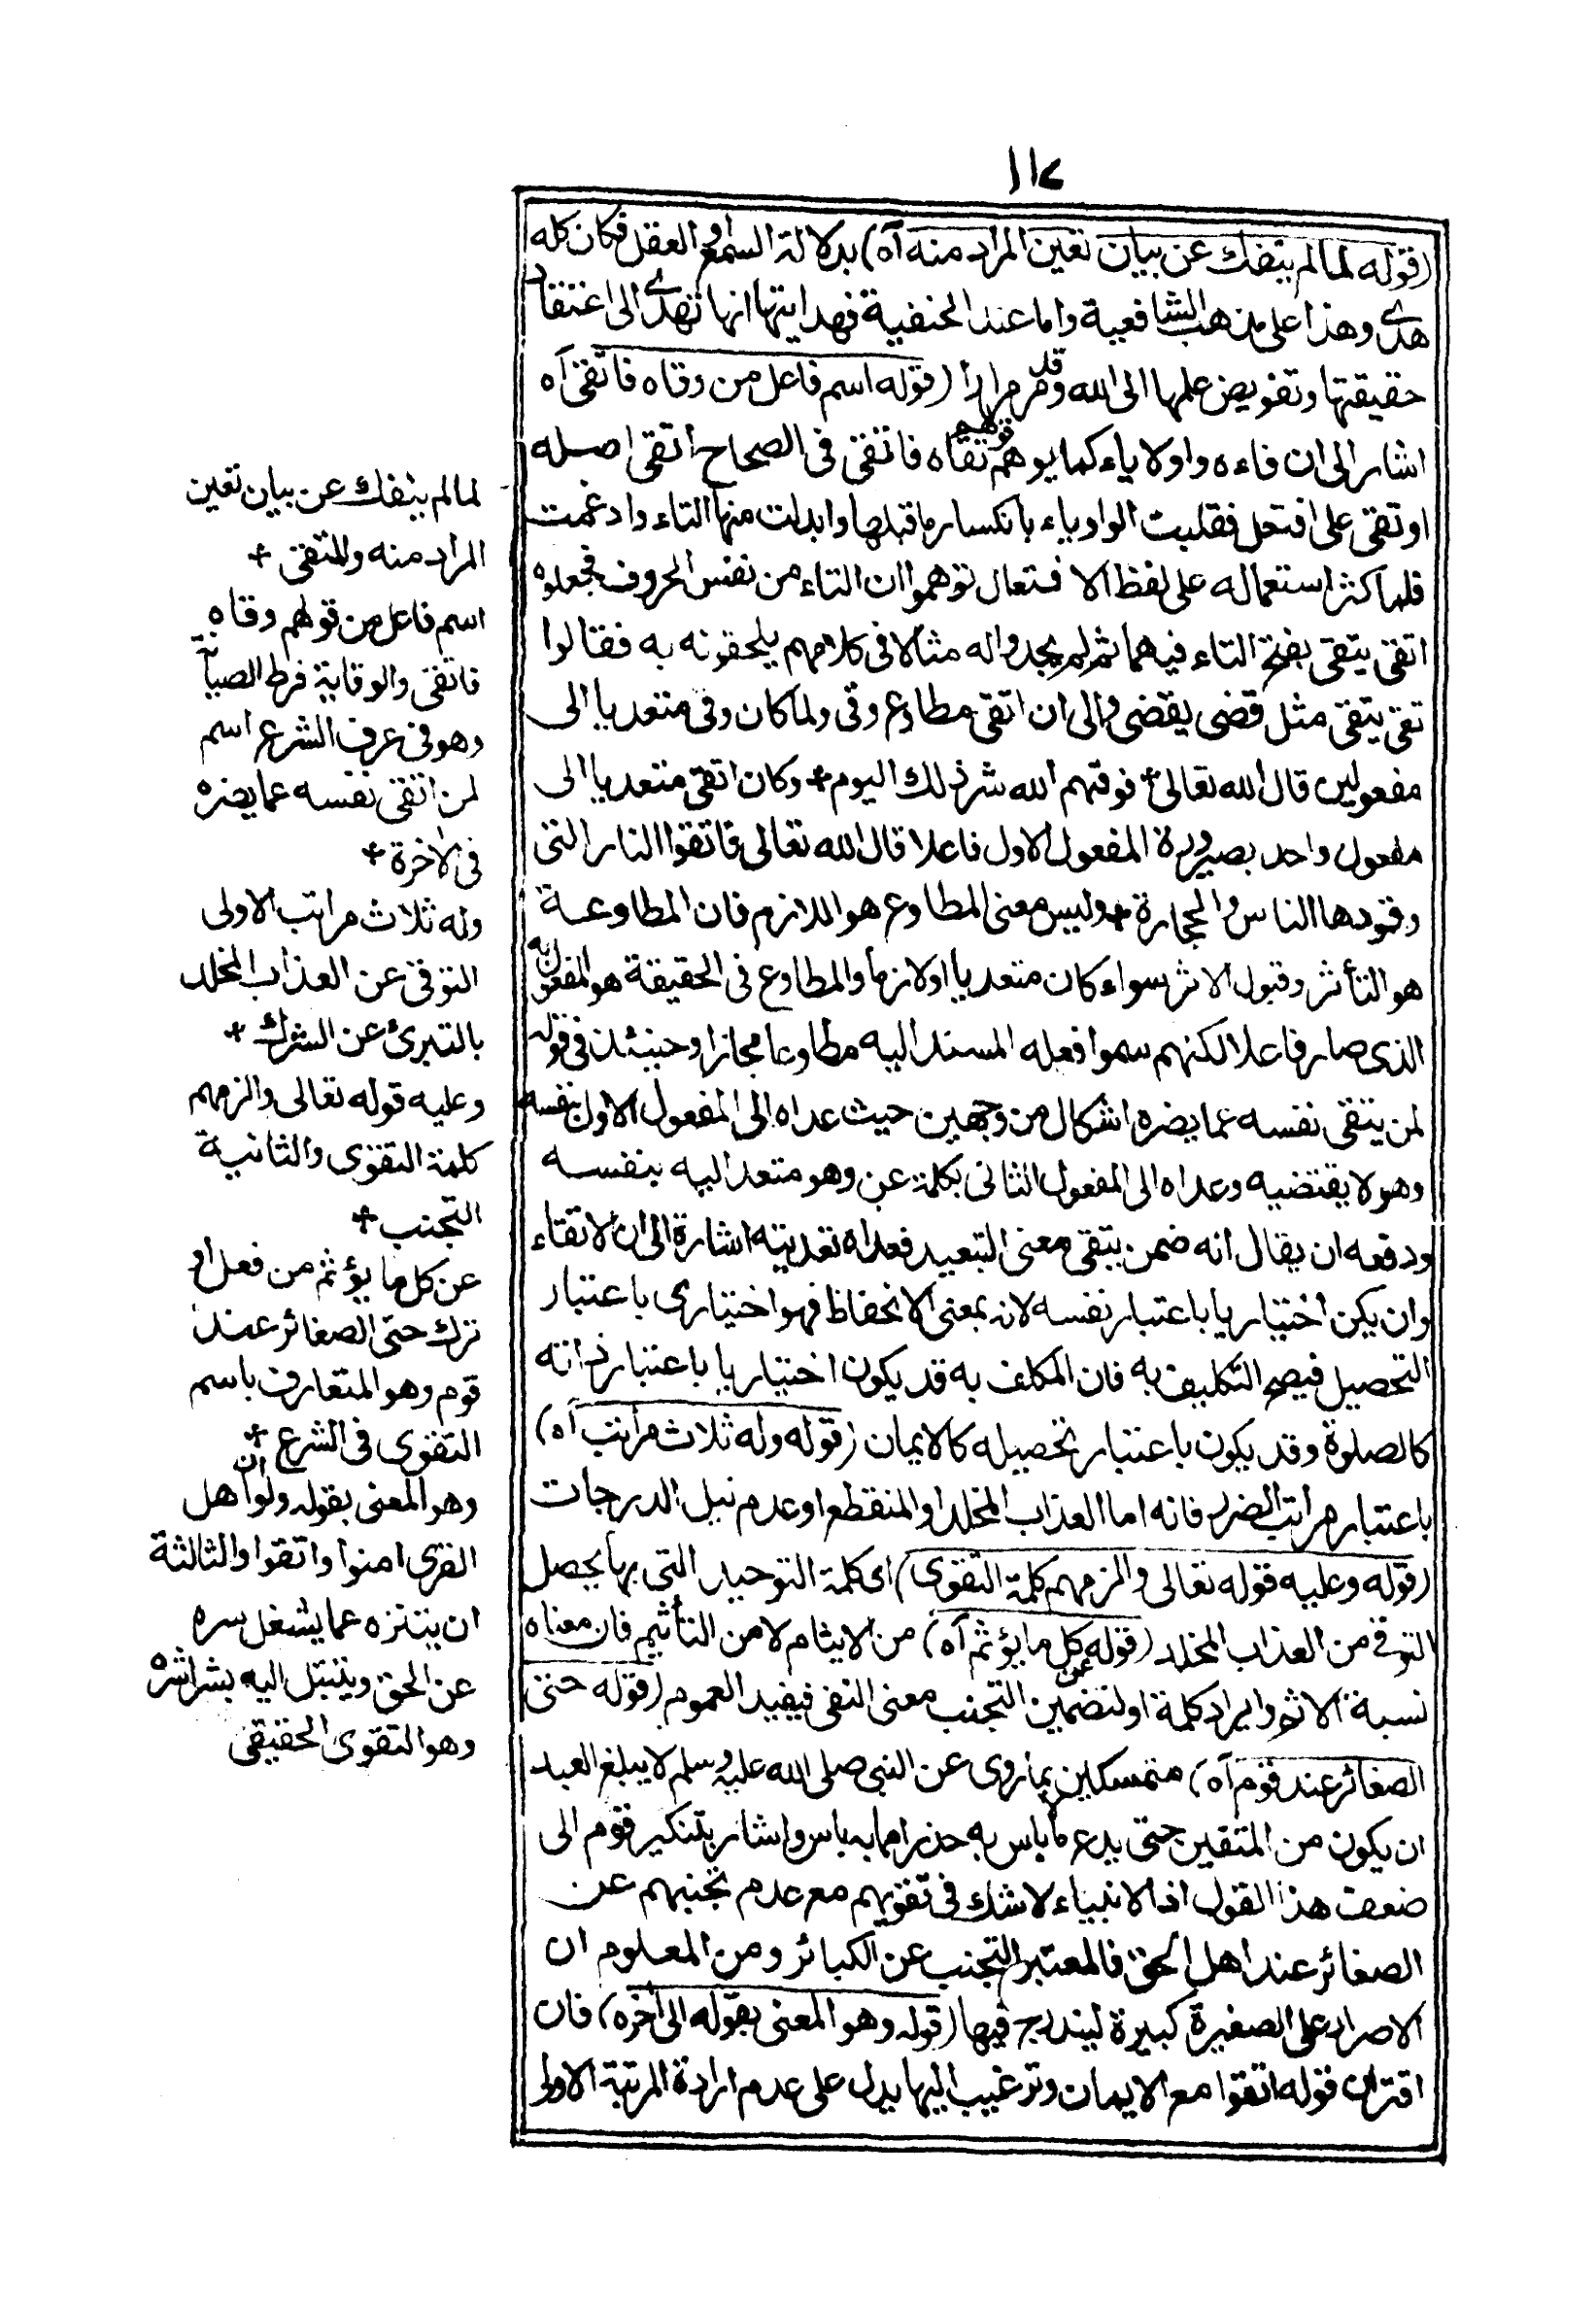 ١١٧
(قوله لما لم ينفك عن بيان تعين المراد منه آه) بدلالة السمع او العقل فكان كله
هدى وهذا على مذهب الشافعية واما عند الحنفية فهدايتها انها تهدى الى اعتقاد
حقيقتها وتفويض علمها الى الله وقد مر مرارا (قوله اسم فاعل من وقاه فاتقى آه
اشار الى ان فاءه واو لا ياء كما يوهم قولهم تقاه فاتقى فى الصحاح اتقى اصله
اوتقى على افتعل فقلبت الواو ياء بانكسار ما قبلها وابدلت منها التاء وادغمت
فلما كثر استعماله على لفظ الافتعال توهموا ان التاء من نفس الحروف فجعلوه
اتقى يتقى بفتح التاء فيهما ثم لم يجدوا له مثالا فى كلامهم يلحقونه به فقالوا
تقى يتقى مثل قضى يقضى والى ان اتقى مطاوع وقى ولما كان وقى متعديا الى
مفعولين قال الله تعالى + فوقهم الله شر ذلك اليوم + وكان اتقى متعديا الى
مفعول واحد بصيرورة المفعول الاول فاعلا قال الله تعالى فاتقوا النار التى
وقودها الناس والحجارة + وليس معنى المطاوع هو اللازم فان المطاوعة
هو التأثر وقبول الاثر سواء كان متعديا او لازما والمطاوع فى الحقيقة هو المفعول به
الذى صار فاعلا لكنهم سموا فعله المسند اليه مطاوعا مجازا وحينئذ فى قوله
لمن يتقى نفسه عما يضره اشكال من وجهين حيث عداه الى المفعول الاول بنفسه
وهو لا يقتضيه وعداه الى المفعول الثانى بكلمة عن وهو متعد اليه بنفسه
ودفعه ان يقال انه ضمن يتقى معنى التبعيد فعداه تعديته اشارة الى ان الاتقاء
وان يكن اختياريا باعتبار نفسه لانه بمعنى الانحفاظ فهو اختيارى باعتبار
التحصيل فيصح التكليف به فان المكلف به قد يكون اختياريا باعتبار ذاته
كالصلوة وقد يكون باعتبار تحصيله كالايمان (قوله وله ثلاث مراتب آه)
باعتبار مراتب الضرر فانه اما العذاب المخلد او المنقطع او عدم نيل الدرجات
(قوله وعليه قوله تعالى والزمهم كلمة التقوى) اى كلمة التوحيد التى بها يحصل
التوقى من العذاب المخلد (قوله عن كل ما يؤثم آه) من الايثام لا من التأثيم فان معناه
نسبة الاثم وايراد كلمة او لتضمين التجنب معنى النفى فيفيد العموم (قوله حتى
الصغائر عند قوم آه) متمسكين بما روى عن النبى صلى الله عليه وسلم لا يبلغ العبد
ان يكون من المتقين حتى يدع ما لا باس به حذرا مما به باس واشار بتنكير قوم الى
ضعف هذا القول اذ الانبياء لا شك فى تقويهم مع عدم تجنبهم عن
الصغائر عند اهل الحق فالمعتبر التجنب عن الكبائر ومن المعلوم ان
الاصرار على الصغيرة كبيرة ليندرج فيها (قوله وهو المعنى بقوله الى آخره) فان
اقتران قوله اتقوا مع الايمان وترغيب اليها يدل على عدم ارادة المرتبة الاولى
لما لم ينفك عن بيان تعين
المراد منه والمتقى +
اسم فاعل من قولهم وقاه
فاتقى والوقاية فرط الصيانة
وهو فى عرف الشرع اسم
لمن اتقى نفسه عما يضره
فى الآخرة +
وله ثلاث مراتب الاولى
التوقى عن العذاب المخلد
بالتبرئ عن الشرك +
وعليه قوله تعالى والزمهم
كلمة التقوى والثانية
التجنب +
عن كل ما يؤثم من فعل او
ترك حتى الصغائر عند
قوم وهو المتعارف باسم
التقوى فى الشرع +
وهو المعنى بقوله ولو ان اهل
القرى امنوا واتقوا والثالثة
ان يتنزه عما يشغل سره
عن الحق ويتبتل اليه بشراشره
وهو التقوى الحقيقى